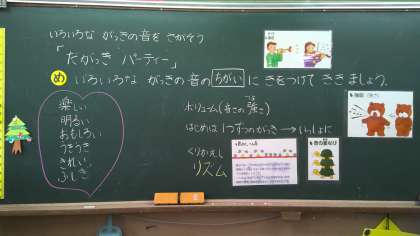 いろいろな がっきの音を さがそう
「だがっき パーティー」
め いろいろな がっきの音の ちがいに きをつけて ききましょう。
楽しい
明るい
おもしろい
うきうき
きれい
ふしぎ
ボリューム(音の強さ)
つよ
はじめは 1つずつのがっき → いっしょに
くりかえし
リズム